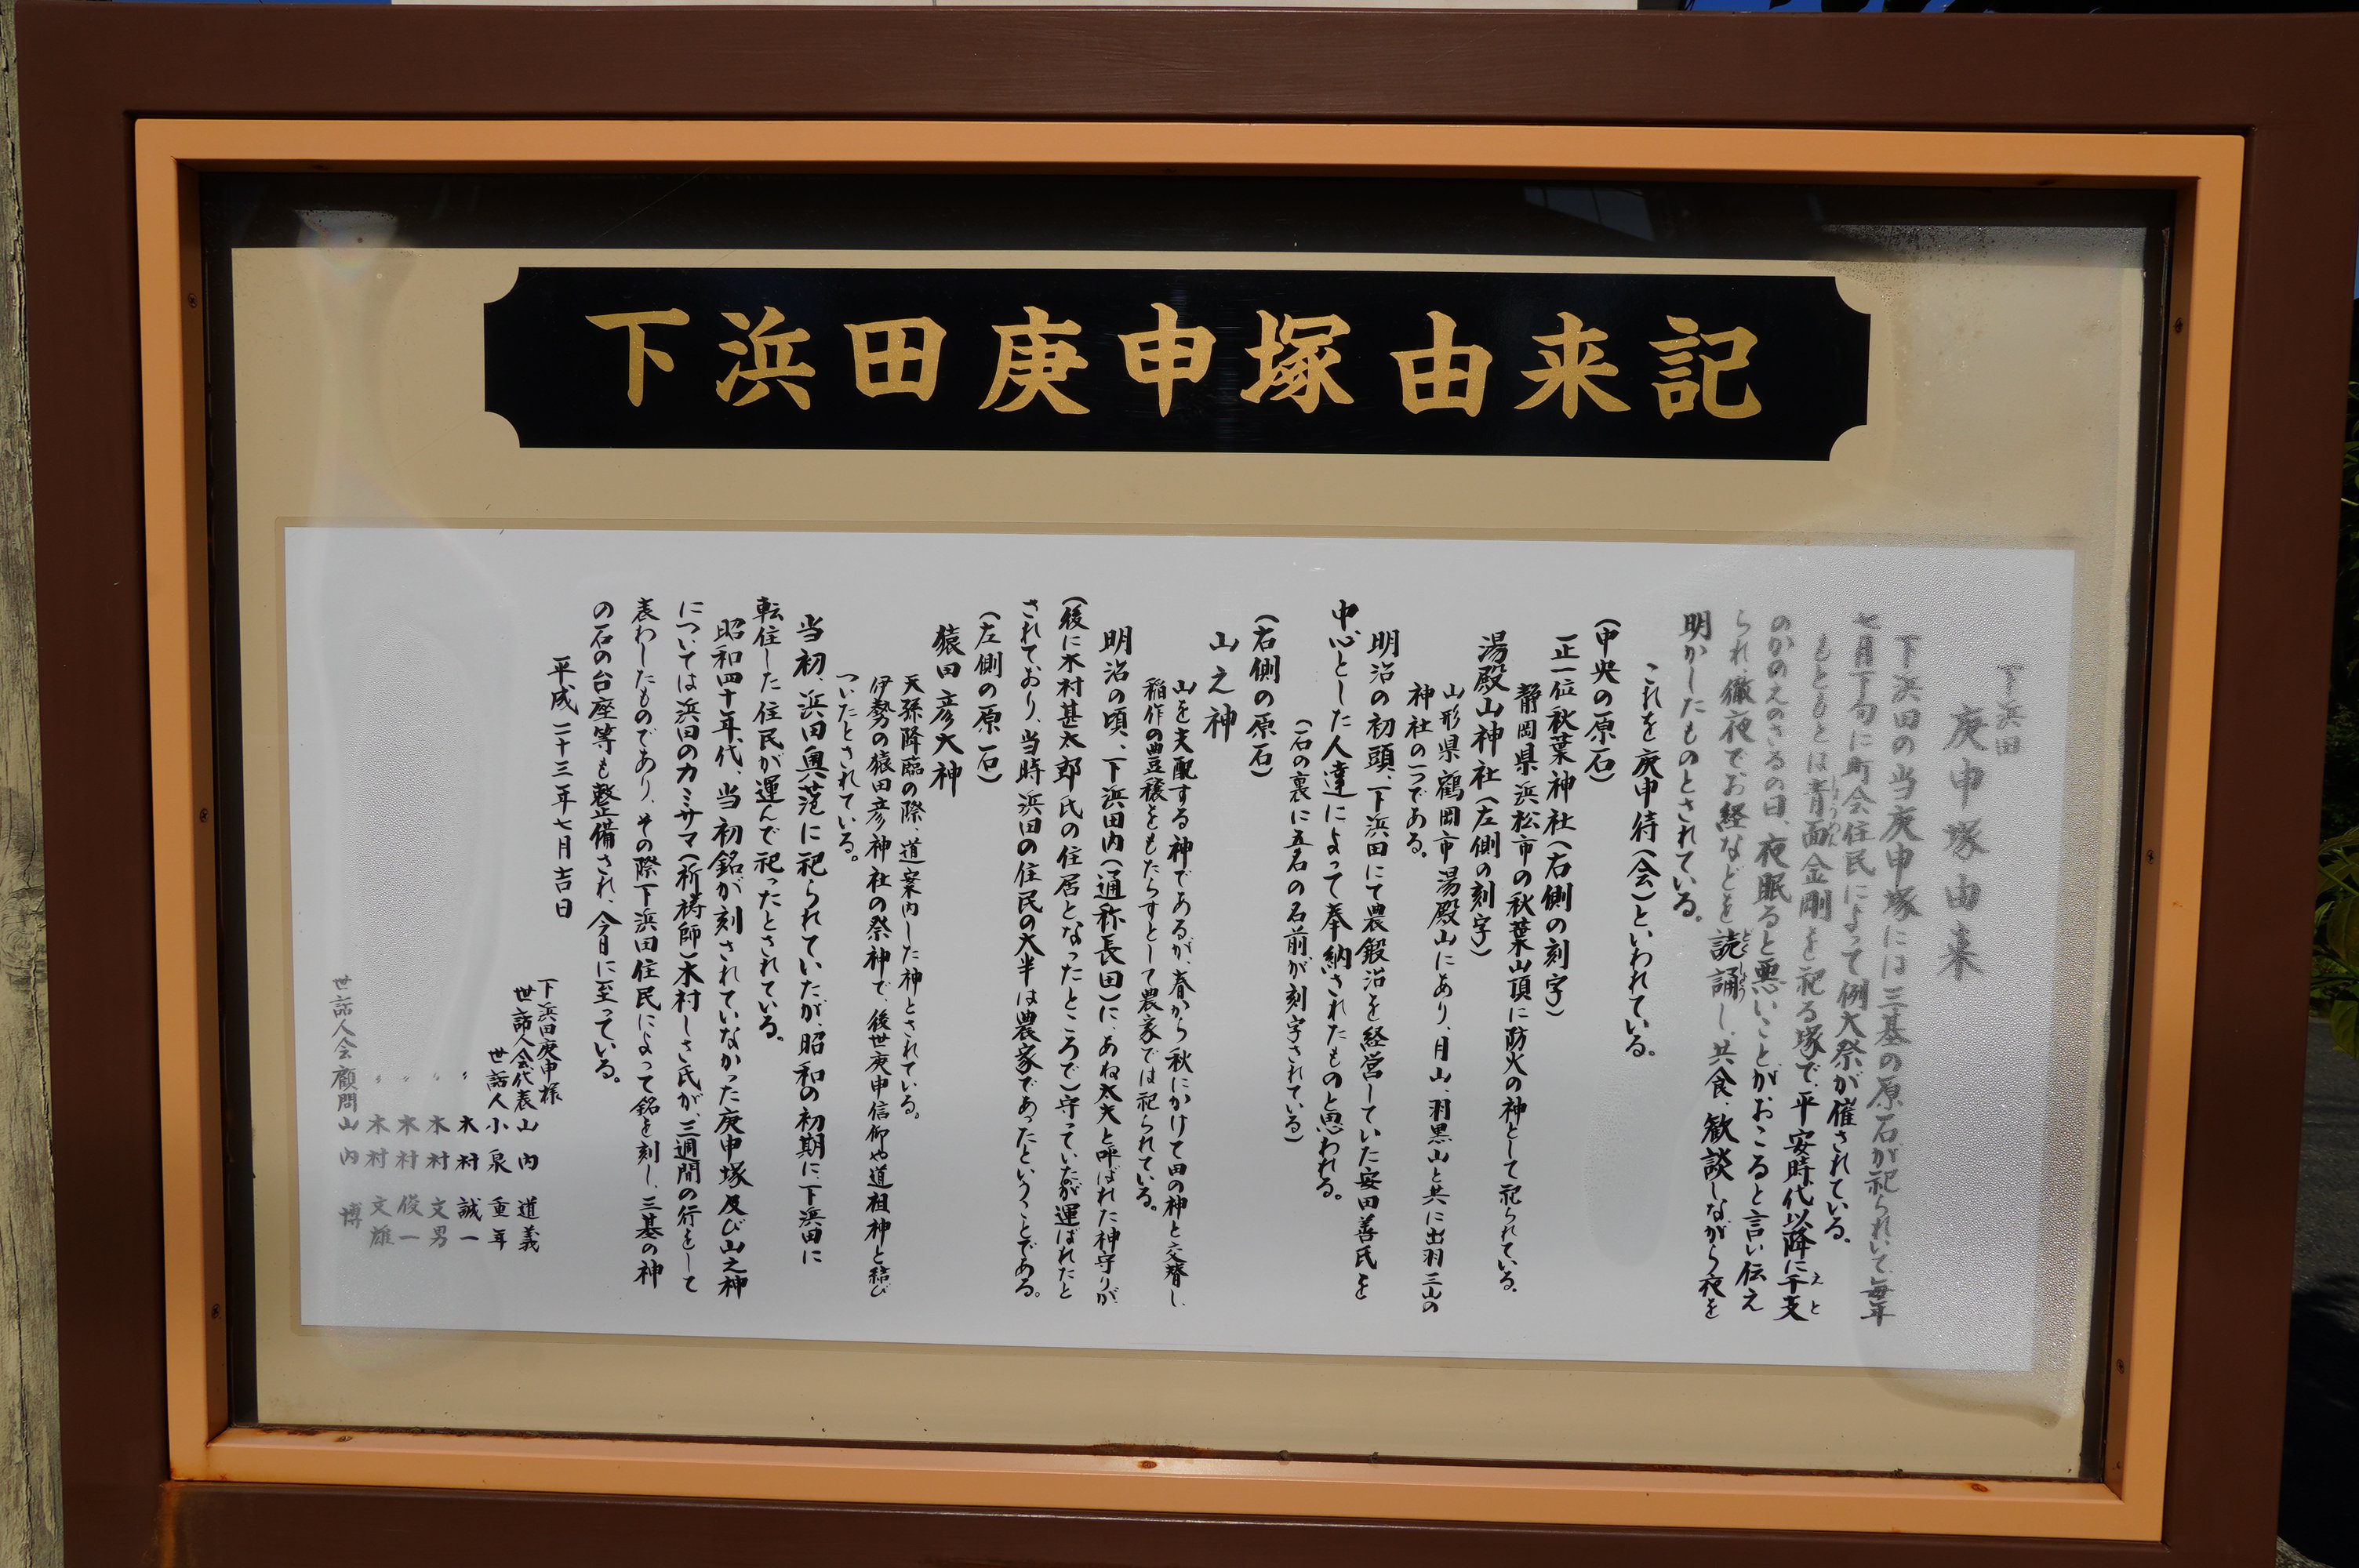 下浜田庚申塚由来記
下浜田
庚申塚由来
下浜田の当庚申塚には三基の原石が祀られいて毎年
七月下旬に町会住民によって例大祭が催されている。
もともとは青面金剛を祀る塚で、平安時代以降に干支
のかのえのさるの日、夜眠ると悪いことがおこると言い伝え
られ、徹夜でお経などを読誦し、共食、歓談しながら夜を
明かしたものとされている。
これを庚申待(会)といわれている。
(中央の原石)
正一位秋葉神社(右側の刻字)
静岡県浜松市の秋葉山頂に防火の神として祀られている。
湯殿山神社(左側の刻字)
山形県鶴岡市湯殿山にあり、月山、羽黒山と共に出羽三山の
神社の一つである。
明治の初頭、下浜田にて農鍛冶を経営していた安田善氏を
中心とした人達によって奉納されたものと思われる。
(石の裏に五名の名前が刻字されている)
(右側の原石)
山之神
山を支配する神であるが、春から秋にかけて田の神と交替し、
稲作の豊穣をもたらすとして農家では祀られている。
明治の頃、下浜田内(通称長田)に、あね太夫と呼ばれた神守りが、
(後に木村甚太郎氏の住居となったところで)守っていたが運ばれたと
されており、当時浜田の住民の大半は農家であったということである。
(左側の原石)
猿田彦大神
天孫降臨の際、道案内した神とされている。
伊勢の猿田彦神社の祭神で、後世庚申信仰や道祖神と結び
ついたとされている。
当初、浜田輿範に祀られていたが、昭和の初期に、下浜田に
転住した住民が運んで祀ったとされている。
昭和四十年代、当初銘が刻されていなかった庚申塚及び山之神
については浜田のカミサマ(祈祷師)木村しさ氏が、三週間の行をして
表わしたものであり、その際下浜田住民によって銘を刻し、三基の神
の石の台座等も整備され、今日に至っている。
平成二十三年七月吉日
下浜田庚申様
世話人会代表 山内道義
世話人 小泉重年
〃 木村誠一
〃 木村文男
〃 木村俊一
〃 木村文雄
世話人会顧問 山内博